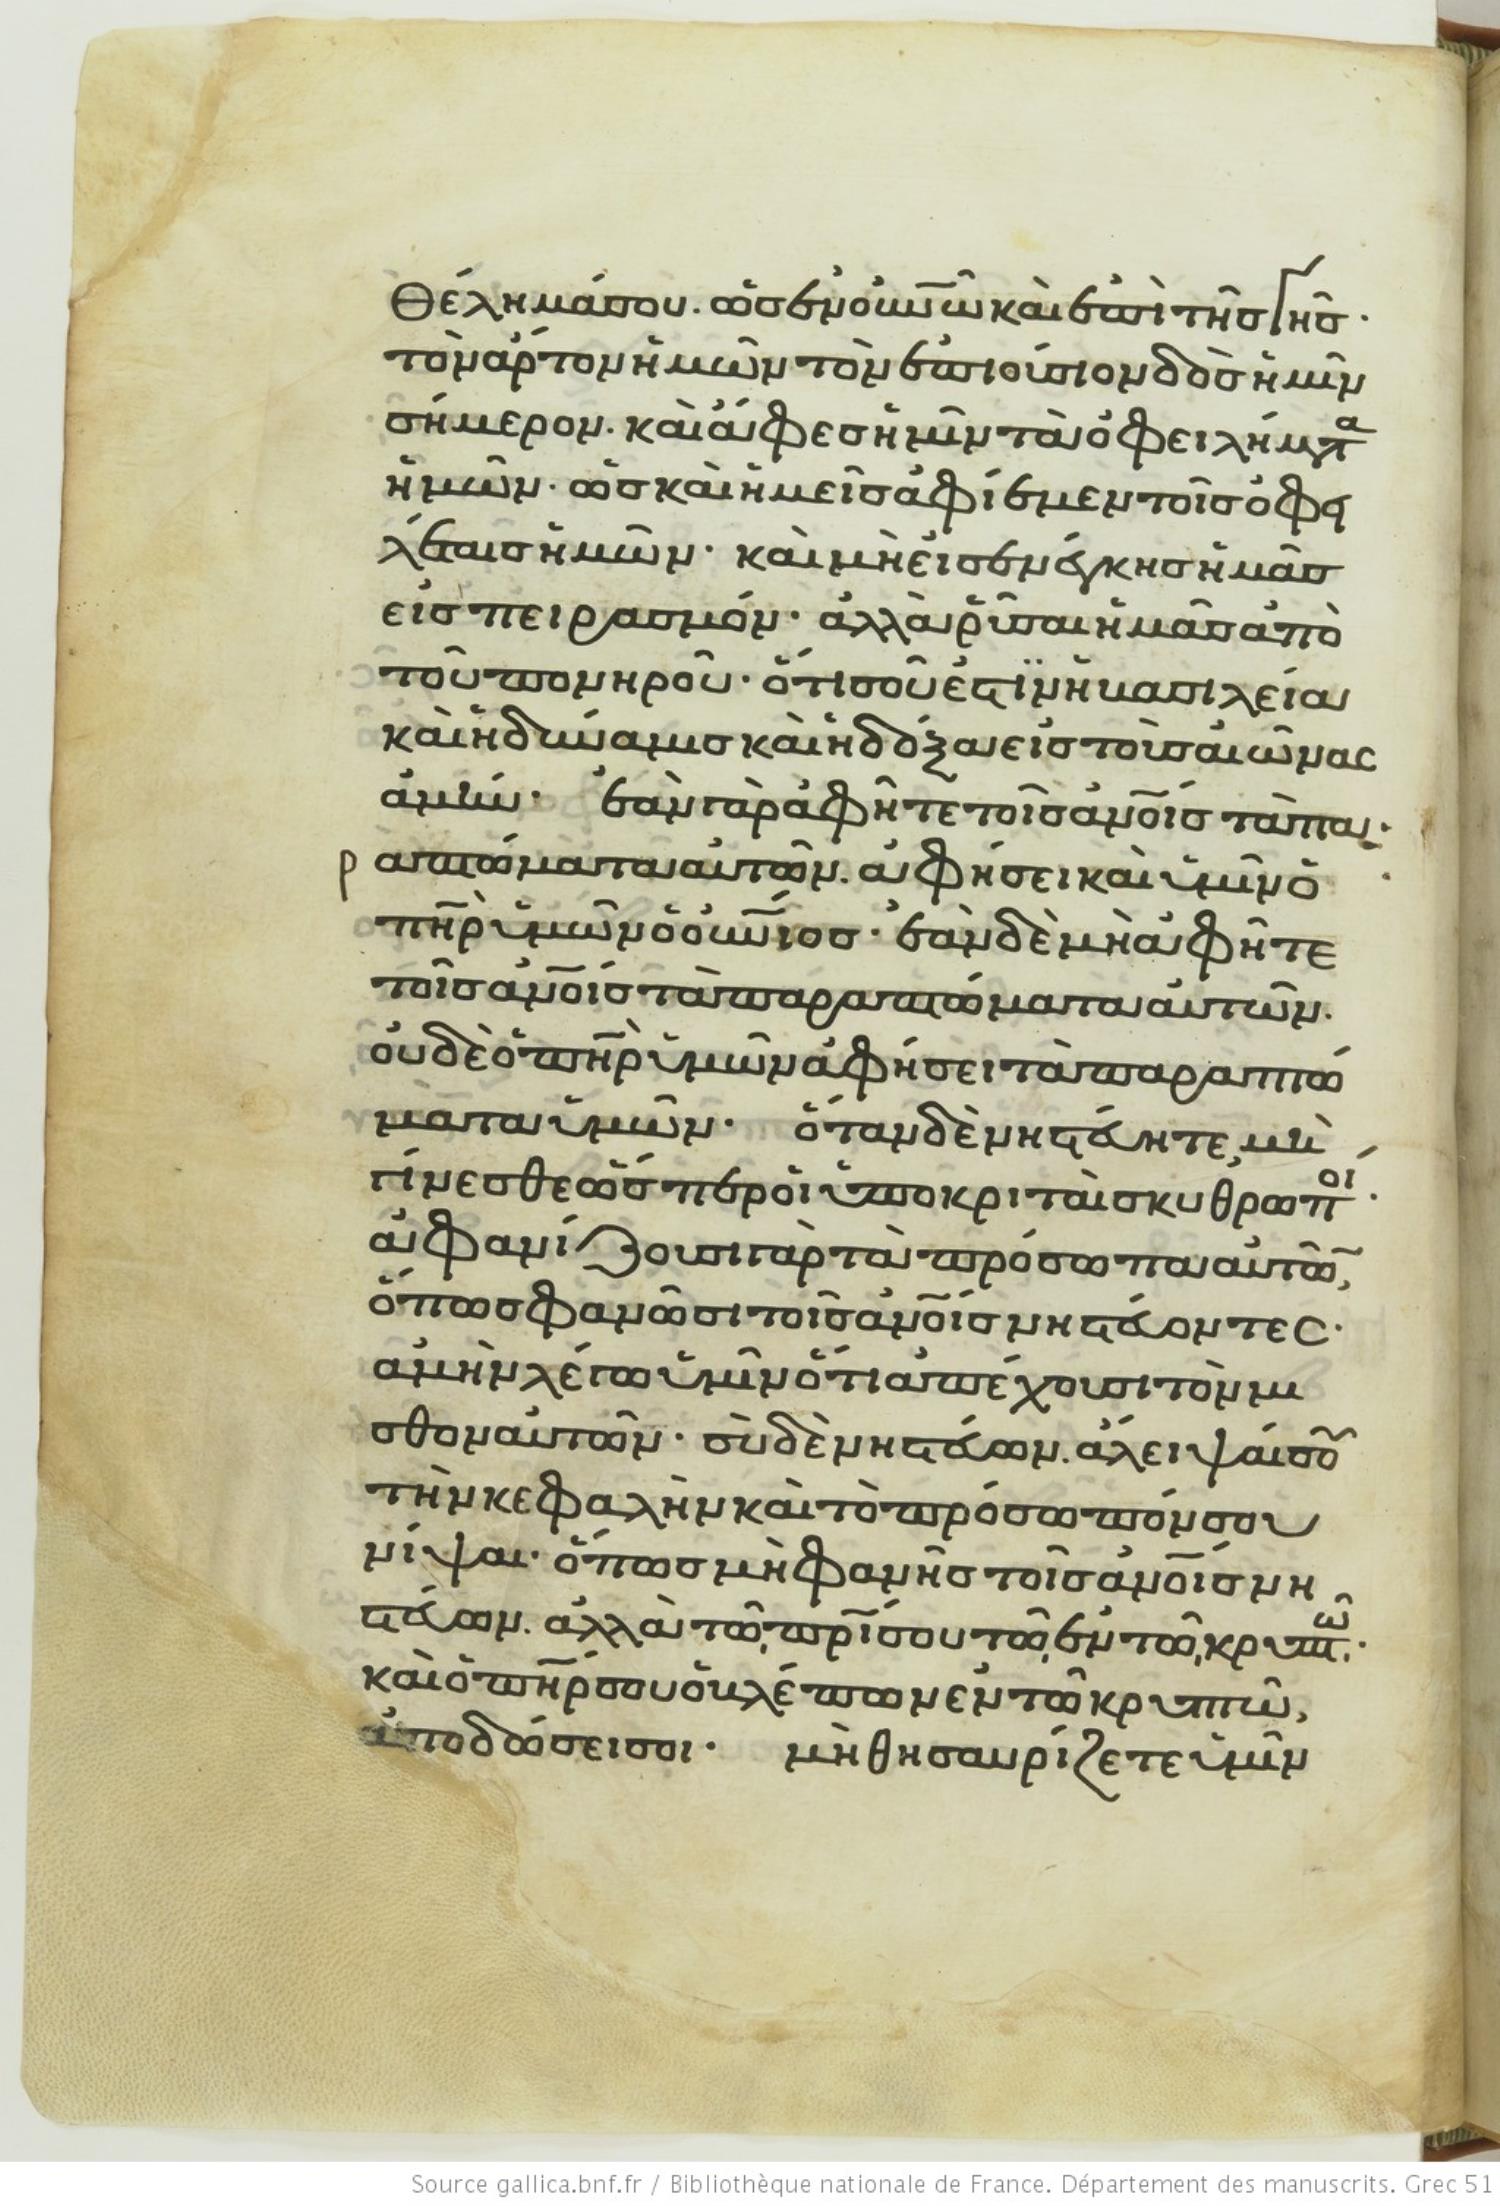 θέλημά σου. ὡς ἐν οὐνῶ καὶ ἐπὶ τῆς γῆς·
τὸν ἄρτον ἡμῶν τὸν ἐπιούσιον δὸς ἡμῖν
σήμερον. καὶ ἄφες ἡμῖν τὰ ὀφειλήματα
ἡμῶν· ὡς καὶ ἡμεῖς ἀφίεμεν τοῖς ὀφει
λέταις ἡμῶν· καὶ μὴ εἰσενέγκης ἡμᾶς
εἰς πειρασμόν· ἀλλὰ ῥῦσαι ἡμᾶς ἀπὸ
τοῦ πονηροῦ· ὅτι σοῦ ἐστϊν ἡ βασιλεία
καὶ ἡ δύναμις καὶ ἡ δόξα εἰς τοὺς αἰῶνας
ἀμήν· ἐὰν γὰρ ἀφῆτε τοῖς ἀνοῖς τὰ πα·
ραπτώματα αὐτῶν. ἀφήσει καὶ ὑμῖν ὁ
πηρ ὑμῶν ὁ οὐνιος· ἐὰν δὲ μὴ ἀφῆτε
τοῖς ἀνοῖς τὰ παραπτώματα αὐτῶν.
οὐδὲ ὁ πηρ ὑμῶν ἀφήσει τὰ παραπτώ
ματα ὑμῶν· ὅταν δὲ νηστεύητε, μὴ
γίνεσθε ὥσπερ οἱ ὑποκριταὶ σκυθρωποί·
ἀφανίζουσι γὰρ τὰ πρόσωπα αὐτῶ̃,
ὅπως φανῶσι τοῖς ἀνοῖς νηστεύοντες·
ἀμὴν λέγω ὑμῖν ὅτι ἀπέχουσι τὸν μι
σθον αὐτῶν· σὺ δὲ νηστεύων. ἄλειψαί σου
τὴν κεφαλὴν καὶ τὸ πρόσωπόν σου
νίψαι· ὅπως μὴ φανῆς τοῖς ἀνοῖς νη
στεύων. ἀλλὰ τῶ, πρί σου τῶ, ἐν τῶ, κρυπτῶ·
καὶ ὁ πηρ σου ὁ βλέπων ἐν τῶ κρυπτῶ,
ἀποδώσει σοι· μὴ θησαυρίζετε ὑμῖν
Source gallica.bnf.fr / Bibliothèque nationale de France. Département des manuscrits. Grec 51